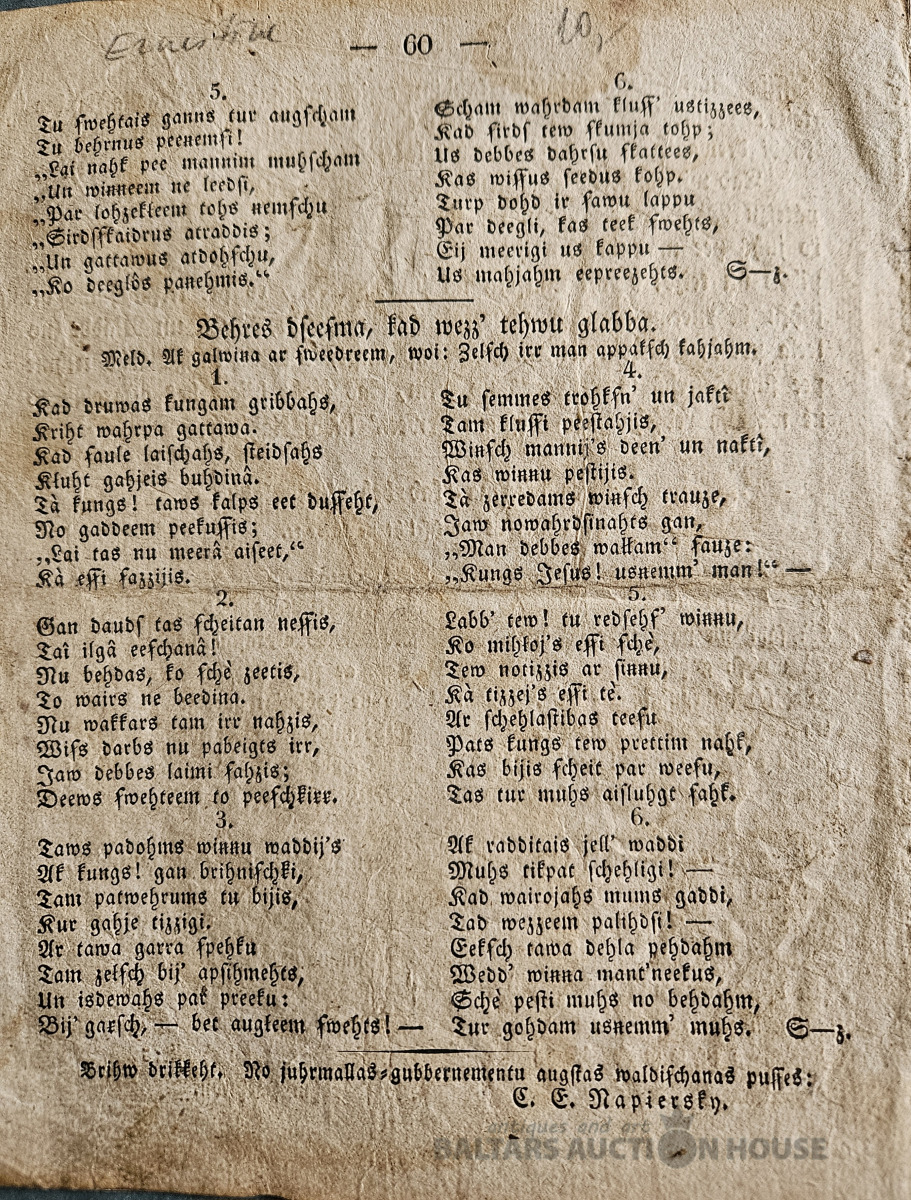 Ernestine
— 60 —
10,-
5.
Tu ſwehtais ganns tur augſcham
Tu behrnus peenemſi!
„Lai nahk pee mannim muhſcham
„Un winneem ne leedſi,
„Par lohzekleem tohs nemſchu
„Sirdsſkaidrus atraddis;
„Un gattawus atdohſchu,
„Ko deeglôs panehmis.“
6.
Scham wahrdam kluſſ' ustizzees,
Kad ſirds tew ſkumja tohp;
Us debbes dahrſu ſkattees,
Kas wiſſus ſeedus kohp.
Turp dohd ir ſawu lappu
Par deegli, kas teek ſwehts,
Eij meerigi us kappu —
Us mahjahm eepreezehts. S—z.
Behres dſeeſma, kad wezz' tehwu glabba.
Meld. Ak galwina ar ſweedreem, woi: Zelſch irr man appakſch kahjahm.
1.
Kad druwas kungam gribbahs,
Kriht wahrpa gattawa.
Kad ſaule laiſchahs, ſteidſahs
Kluht gahjeis buhdinâ.
Tà kungs! taws kalps eet duſſeht,
No gaddeem peekuſſis;
„Lai tas nu meerâ aiſeet,“
Kà eſſi ſazzijis.
2.
Gan dauds tas ſcheitan neſſis,
Taî ilgâ eeſchanâ!
Nu behdas, ko ſchè zeetis,
To wairs ne beedina.
Nu wakkars tam irr nahzis,
Wiſs darbs nu pabeigts irr,
Jaw debbes laimi ſahzis;
Deews ſwehteem to peeſchkirr.
3.
Taws padohms winnu waddij's
Ak kungs! gan brihniſchki,
Tam patwehrums tu bijis,
Kur gahje tizzigi.
Ar tawa garra ſpehku
Tam zelſch bij' apſihmehts,
Un isdewahs pat preeku:
Bij' garſch, — bet augleem ſwehts! —
4.
Tu ſemmes trohkſn' un jaktî
Tam kluſſi peeſtahjis,
Winſch mannij's deen' un naktî,
Kas winnu peſtijis.
Tà zerredams winſch trauze,
Jaw nowahrdſinahts gan,
„Man debbes wallam“ ſauze:
„Kungs Jeſus! usnemm' man!“ —
5.
Labb' tew! tu redſehſ' winnu,
Ko mihloj's eſſi ſchè,
Tew notizzis ar ſinnu,
Kà tizzej's eſſi tè.
Ar ſchehlaſtibas teeſu
Pats kungs tew prettim nahk,
Kas bijis ſcheit par weeſu,
Tas tur muhs aiſluhgt ſahk.
6.
Ak radditais jell' waddi
Muhs tikpat ſchehligi! —
Kad wairojahs mums gaddi,
Tad wezzeem palihdſi! —
Eekſch tawa dehla pehdahm
Wedd' winna mant'neekus,
Schè peſti muhs no behdahm,
Tur gohdam usnemm' muhs. S—z.
Brihw drikkeht. No juhrmallas-gubbernementu augſtas waldiſchanas puſſes:
C. E. Napiersky.
antiques and art
BALTARS AUCTION HOUSE